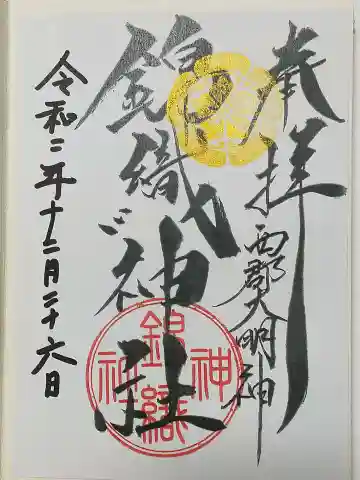 奉拝
西郡大明神
錦織神社
令和二年十二月二十六日
錦織
神社